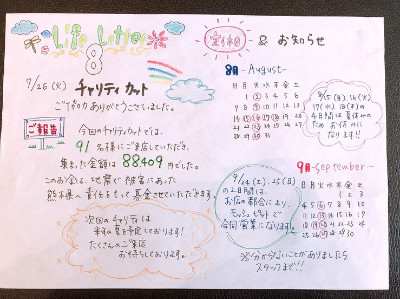 Life Letter
8
7/26(火) チャリティカット
ご協力ありがとうございました。
ご報告
今回のチャリティカットでは、
91名様にご来店していただき、
集まった金額は 88409円でした。
このお金を、地震で被害にあった
熊本へ責任をもって募金させていただきます。
次回のチャリティは
を予定しております!
たくさんのご来店
お待ちしております。
定休日 & お知らせ
8月 -August-
日 月 火 水 木 金 土
1 2 3 4 5 6
7 8 9 10 11 12 13
14 15 16 17 18 19 20
21 22 23 24 25 26 27
28 29 30 31
8/15(月) 16(火)
17(水) 18(木)の
4日間は夏休みの
ためお休みに
なります!!
9月 -september-
日 月 火 水 木 金 土
1 2 3
4 5 6 7 8 9 10
11 12 13 14 15 16 17
18 19 20 21 22 23 24
25 26 27 28 29 30
9/24(土), 25(日)
の2日間は、
お店の都合により、
合同営業になります。
※分からないことがありましたら
スタッフまで!!!